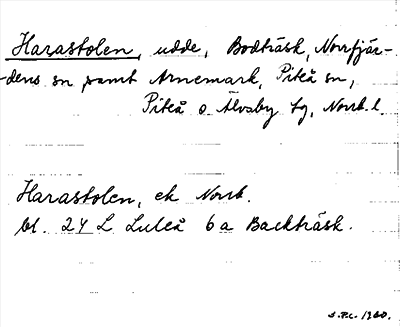 Harastolen, udde, Bodträsk, Norrfjär-
-dens sn samt Arnemark, Piteå sn,
Piteå o. Älvsby tg, Norrb. l.
Harastolen, ek Norrb.
bl. 24 L Luleå 6 a Backträsk.
S.P.C. 1960.